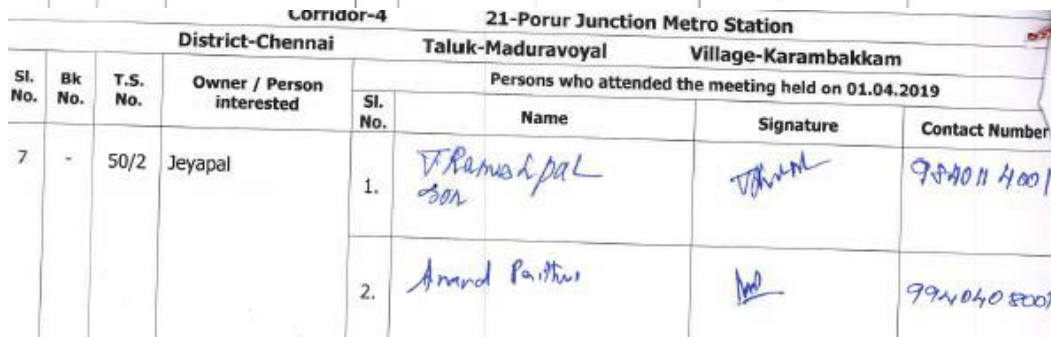 Corridor-4 21-Porur Junction Metro Station
District-Chennai Taluk-Maduravoyal Village-Karambakkam
Sl. No. Bk No. T.S. No. Owner / Person interested Persons who attended the meeting held on 01.04.2019
Sl. No. Name Signature Contact Number
7 - 50/2 Jeyapal 1. J Ramesh pal 984011 4001
son
2. Anand